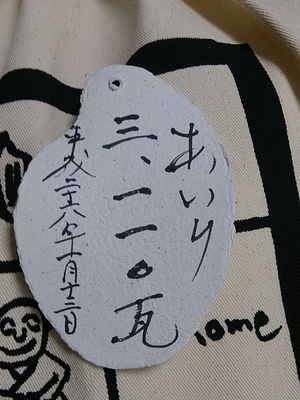 あいり
三、一一〇瓦
平成二十八年十一月十三日
ome